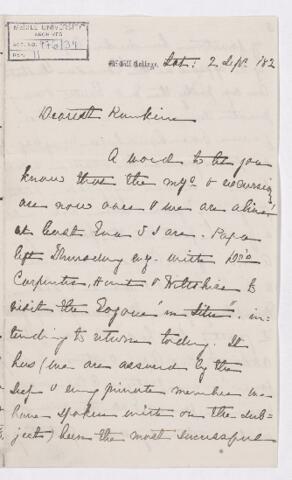 McGILL UNIVERSITY
ARCHIVES
ACC. NO.
REF. 11
McGill College, Sat: 2 Sept. 182
Dearest Rankine
A word to let you
know that the mtgs & excursions
are now over & we are alive!
at least Eva & I are. Papa
left Thursday evg. with Drs
Carpenter, Hunt & Wiltshire to
visit the Eozoon "in Situ". in-
tending to return today. It
has (we are assured by the
Sec & every private member we
have spoken with on the sub-
ject) been the most successful